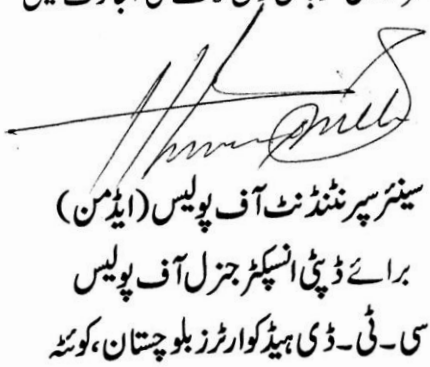 سینئر سپرنٹنڈنٹ آف پولیس (ایڈمن)
برائے ڈپٹی انسپکٹر جنرل آف پولیس
سی۔ٹی۔ڈی ہیڈکوارٹرز بلوچستان، کوئٹہ